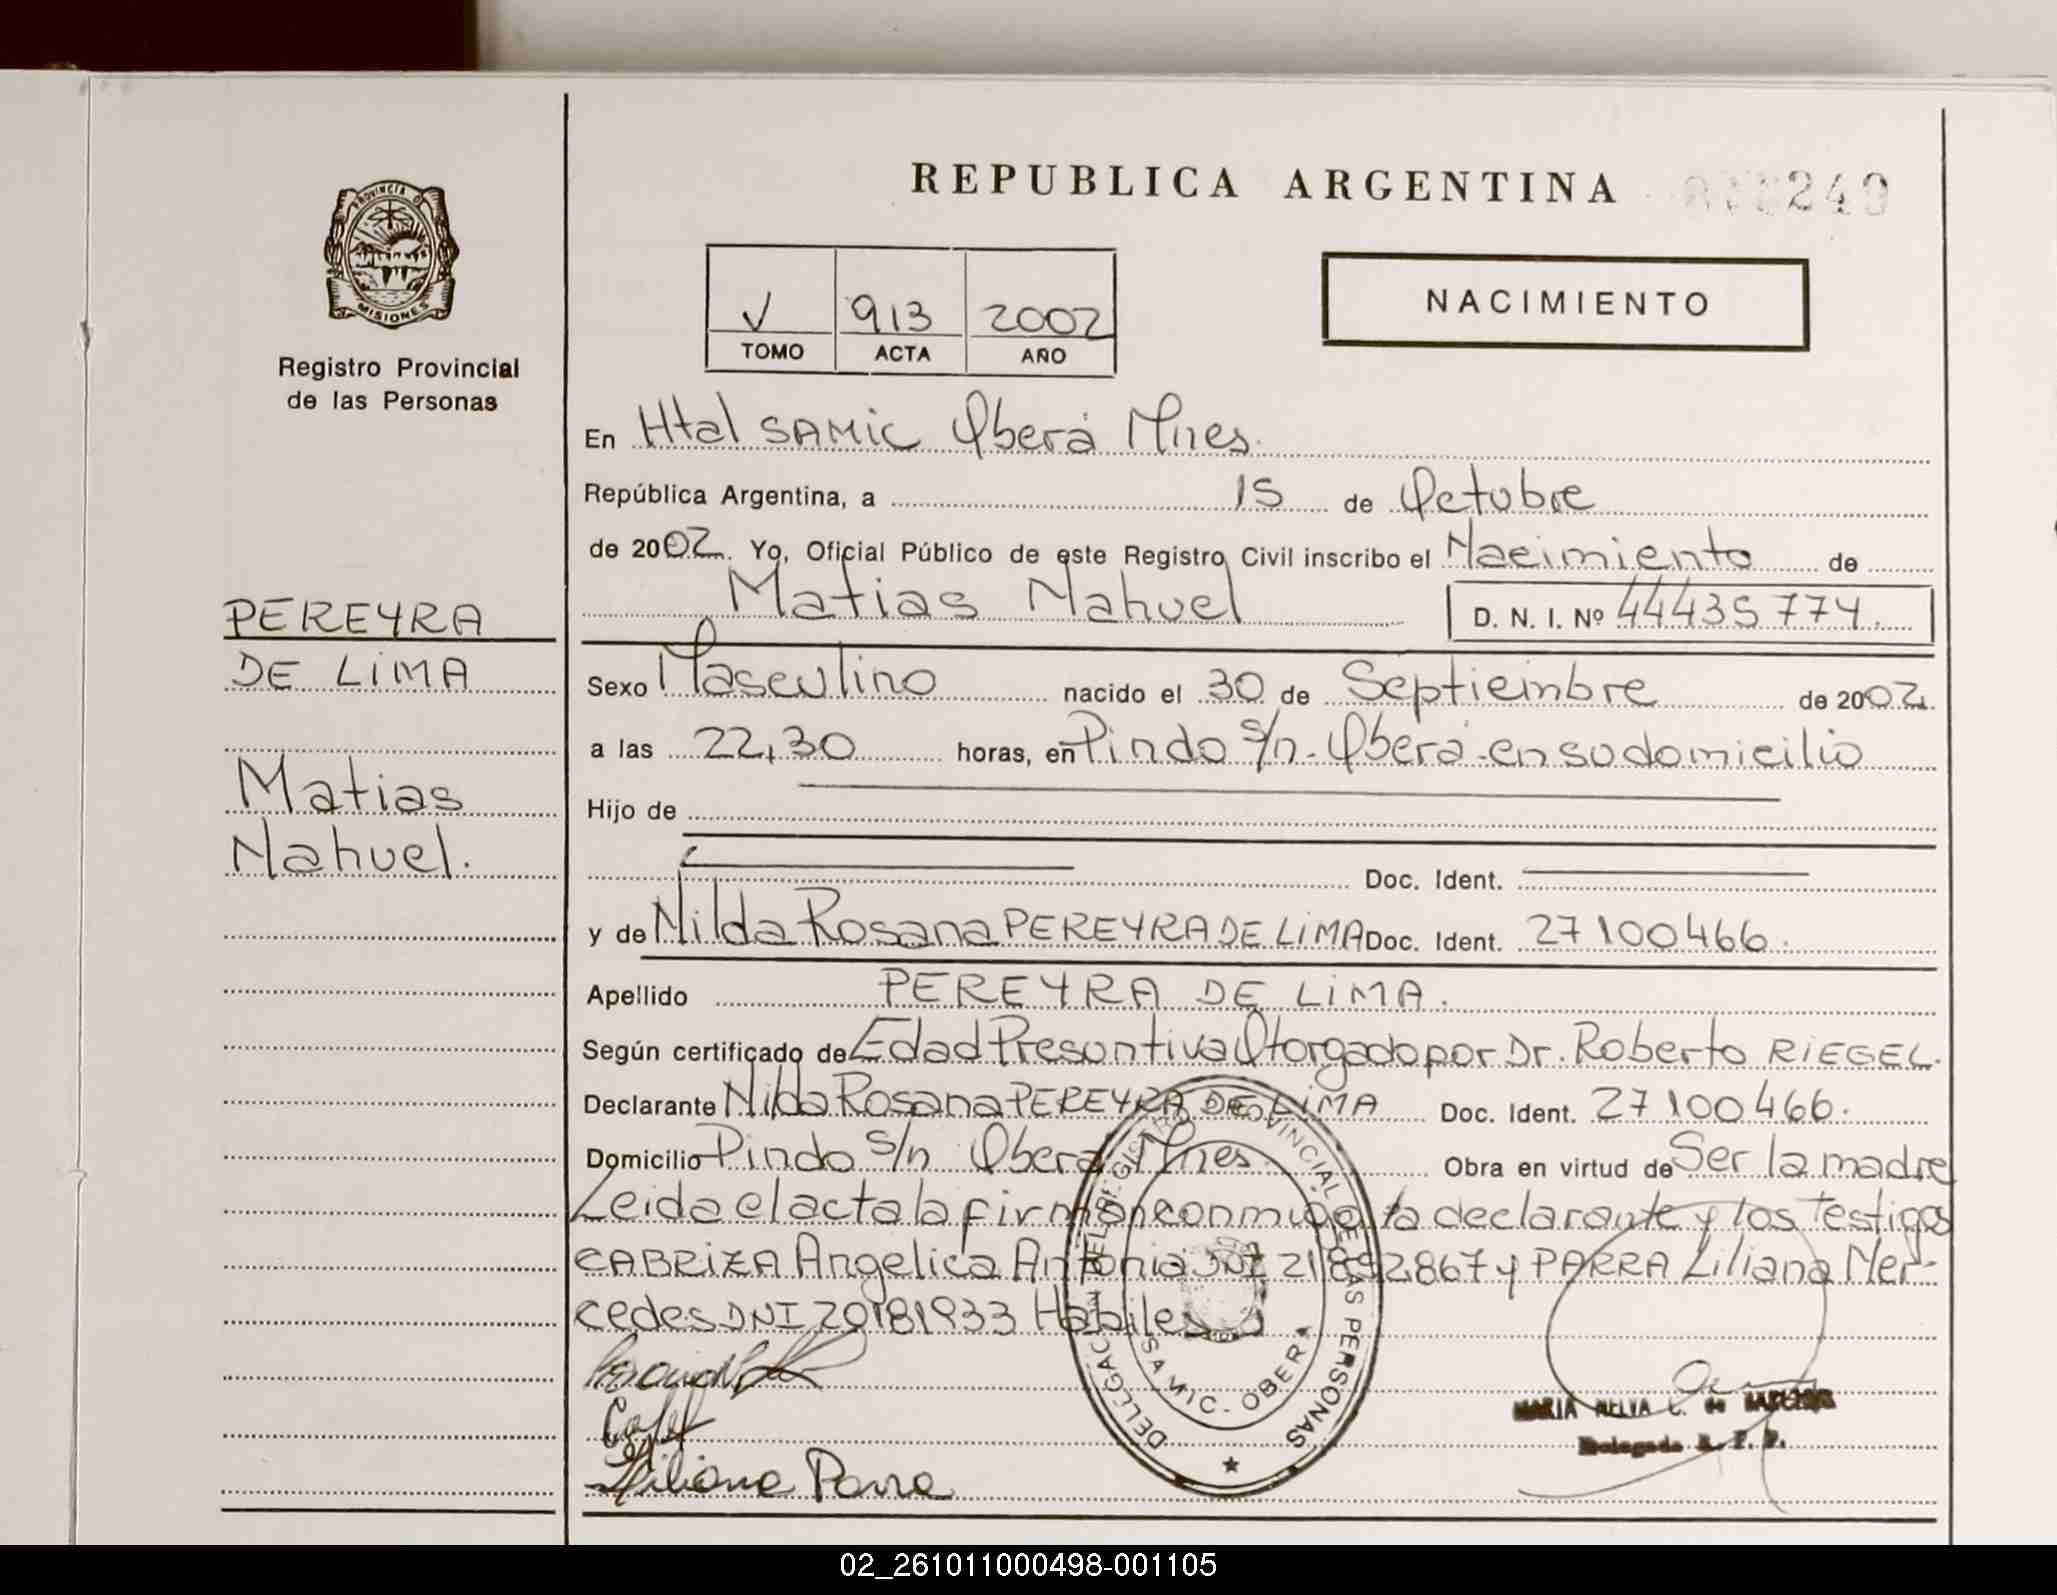 REPUBLICA ARGENTINA
PROVINCIA D
MISIONES
Registro Provincial
de las Personas
V 913 2002
TOMO ACTA AÑO
NACIMIENTO
En Htal SAMIC Oberá Mnes.
República Argentina, a 15 de Octubre
de 2002. Yo, Oficial Público de este Registro Civil inscribo el Nacimiento de
Matias Nahuel D. N. I. Nº 44435774.
PEREYRA
DE LIMA
Matias
Nahuel.
Sexo Masculino nacido el 30 de Septieimbre de 2002.
a las 22,30 horas, en Pindo s/n. Oberá - en su domicilio
Hijo de
Doc. Ident.
y de Nilda Rosana PEREYRA DE LIMA Doc. Ident. 27100466.
Apellido PEREYRA DE LIMA.
Según certificado de Edad Presuntiva Otorgado por Dr. Roberto RIEGEL.
Declarante Nilda Rosana PEREYRA DE LIMA Doc. Ident. 27100466.
Domicilio Pindo s/n Oberá Mnes. Obra en virtud de Ser la madre
Leida el acta la firman conmigo la declarante y los Testigos
CABRIZA Angelica Antonia DNI 21892867 y PARRA Liliana Mer-
cedes DNI 20181933 Habiles
DELEGACION DEL REGISTRO PROVINCIAL DE LAS PERSONAS
SAMIC. OBERA
Liliana Parra
MARIA
Delegada R. P. P.
02_261011000498-001105